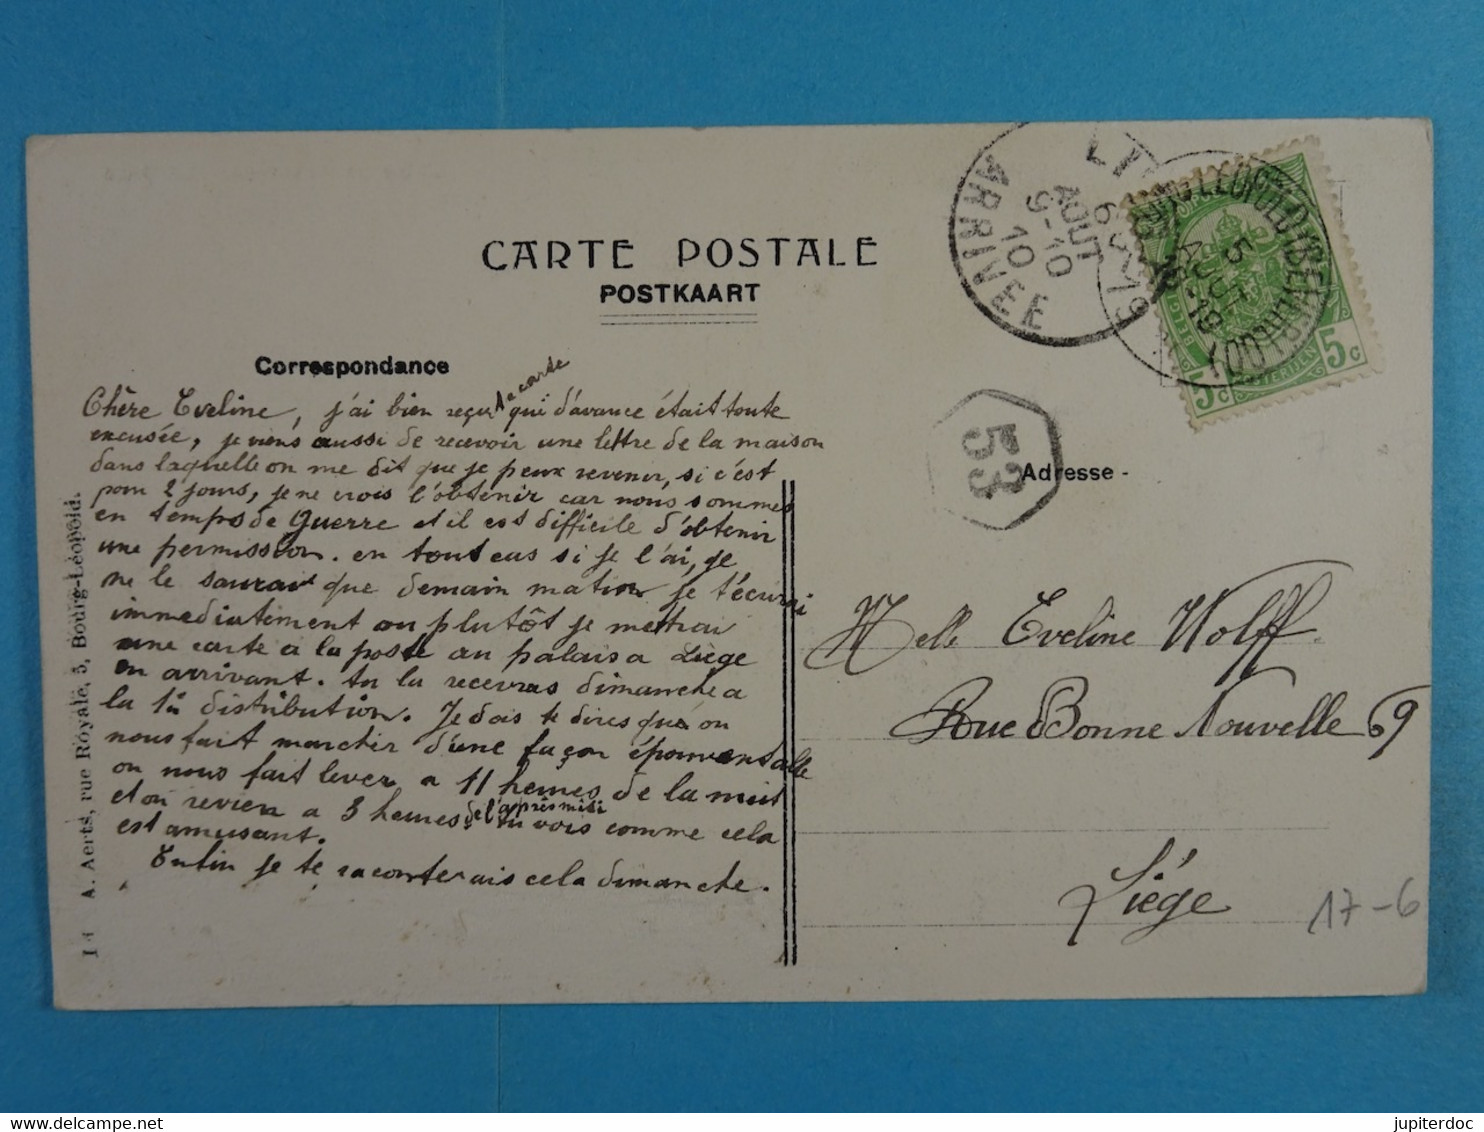 CARTE POSTALE
POSTKAART
Correspondance
Chère Eveline, j'ai bien reçu ta carte qui d'avance était toute
excusée, je viens aussi de recevoir une lettre de la maison
dans laquelle on me dit que je peux revenir, si c'est
pour 2 jours, je ne crois l'obtenir car nous sommes
en temps de Guerre et il est difficile d'obtenir
une permission. en tout cas si je l'ai, je
ne le saurait que demain je t'écrirai
immediatement ou plutôt je mettrai
une carte a la poste au palais a Liège
en arrivant. tu la recevras dimanche a
la 1è distribution. Je dois te dires que on
nous fait marcher d'une façon épouventable
on nous fait lever a 11 heures de la nuit
et on revien a 3 heures de l'après midi tu vois comme cela
est amusant.
Enfin je te raconterais cela dimanche.
1 A. Aerts, rue Royale, 5, Bourg-Léopold.
ARRIVÉE
6
AOUT
9-10
10
BOURG-LÉOPOLD (BEVERLOO)
5
AOUT
5c 5c
53
Adresse -
Melle Eveline Wolff
Rue Bonne Nouvelle 69
Liége
17-6
delcampe.net
jupiterdoc